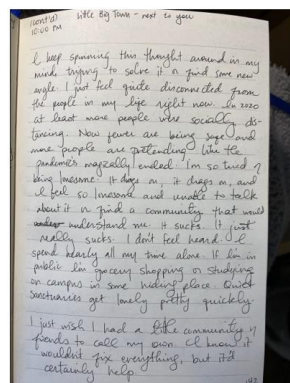 (cont'd) Little Big Town - next to you
10:00 PM
I keep spinning this thought around in my
mind, trying to solve it or find some new
angle. I just feel quite disconnected from
the people in my life right now. In 2020
at least more people were socially dis-
tancing. Now fewer are being safe and
more people are pretending like the
pandemic's magically ended. I'm so tired of
being lonesome. It drags on, it drags on, and
I feel so lonesome and unable to talk
about it or find a community that would
understand me. It sucks. It just
really sucks. I don't feel heard. I
spend nearly all my time alone. If I'm in
public I'm grocery shopping or studying
on campus in some hiding place. Quiet
sanctuaries get lonely pretty quickly.
I just wish I had a little community of
friends to call my own. I know it
wouldn't fix everything, but it'd
certainly help.